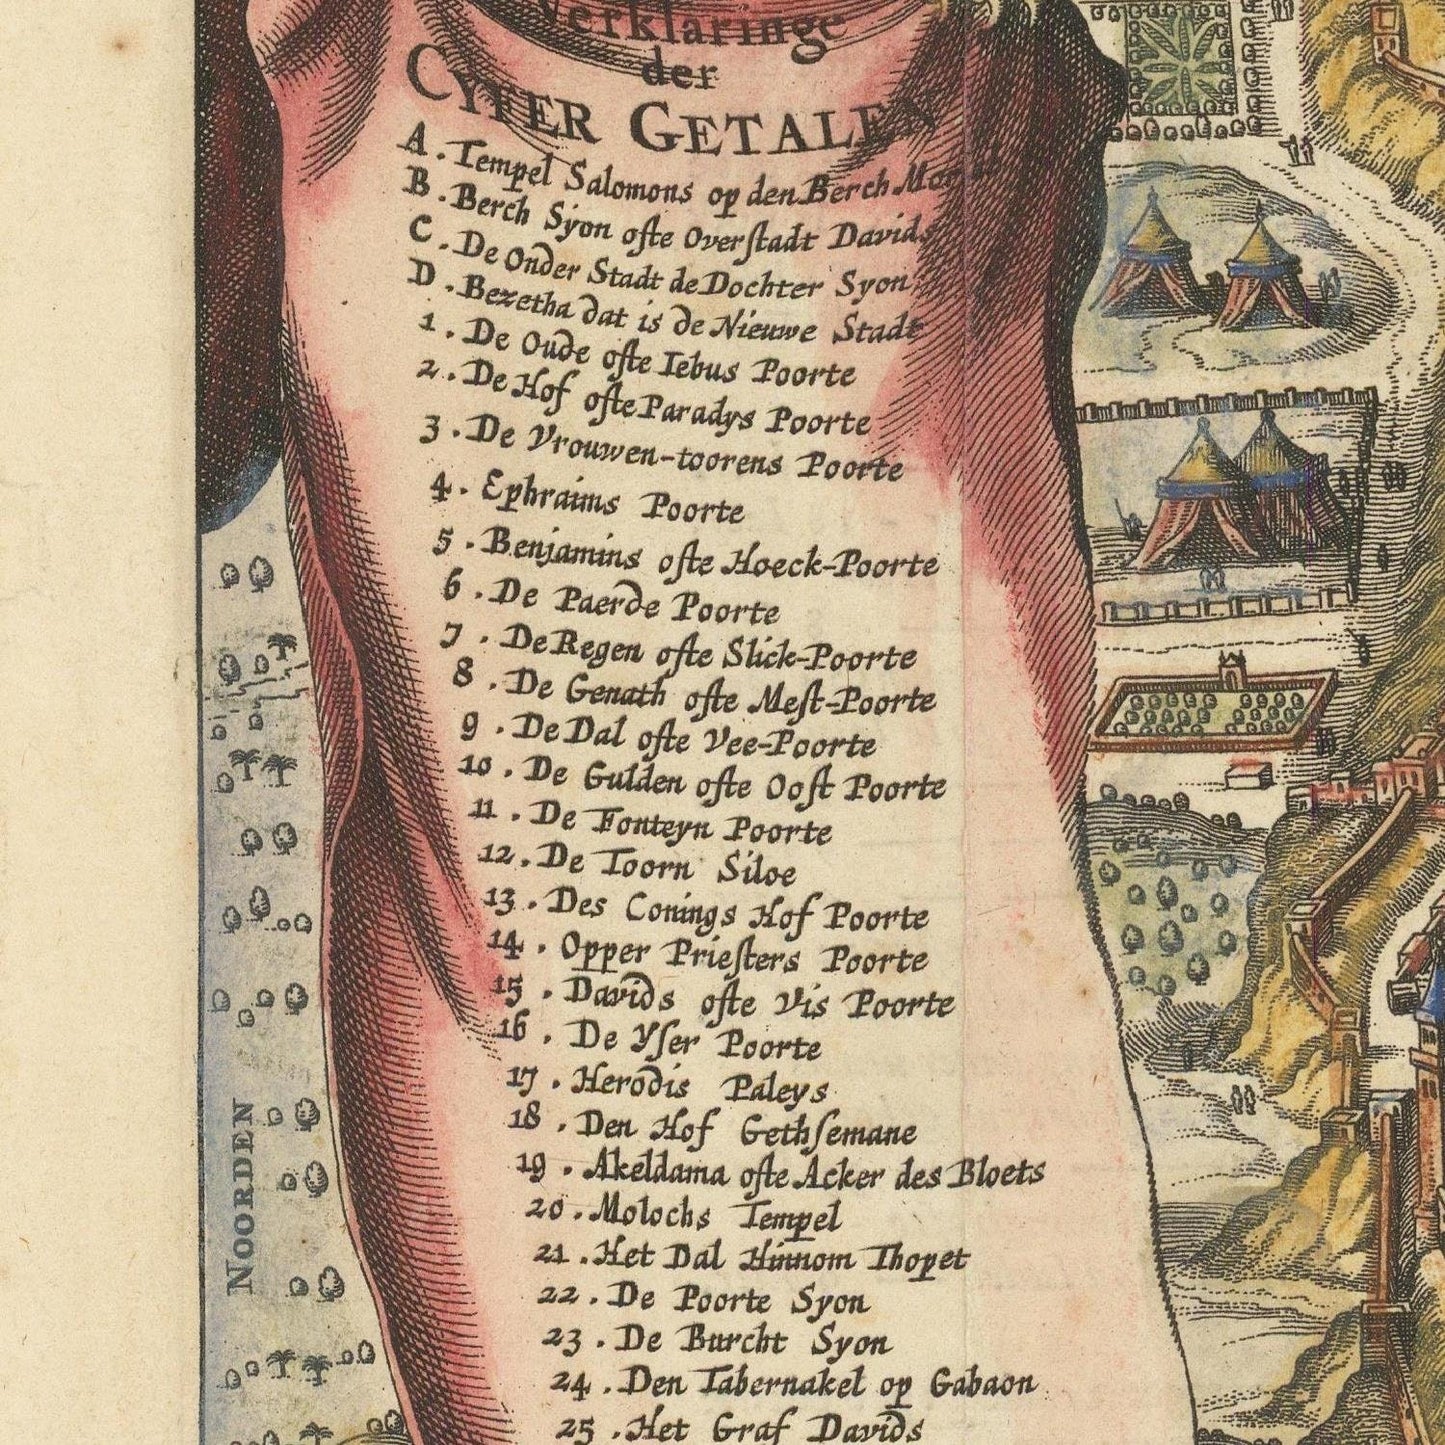 Verklaringe
der
CYFER GETALEN
A. Tempel Salomons op den Berch
B. Berch Syon ofte Overstadt Davids
C. De Onder Stadt de Dochter Syon
D. Bezetha dat is de Nieuwe Stadt
1. De Oude ofte Iebus Poorte
2. De Hof ofte Paradys Poorte
3. De Vrouwen-toorens Poorte
4. Ephraims Poorte
5. Benjamins ofte Hoeck-Poorte
6. De Paerde Poorte
7. De Regen ofte Slick-Poorte
8. De Genath ofte Mest-Poorte
9. De Dal ofte Vee-Poorte
10. De Gulden ofte Oost Poorte
11. De Fonteyn Poorte
12. De Toorn Siloe
13. Des Conings Hof Poorte
14. Opper Priesters Poorte
15. Davids ofte Vis Poorte
16. De Yser Poorte
17. Herodis Paleys
18. Den Hof Gethsemane
19. Akeldama ofte Acker des Bloets
20. Molochs Tempel
21. Het Dal Hinnom Thopet
22. De Poorte Syon
23. De Burcht Syon
24. Den Tabernakel op Gabaon
25. Het Graf Davids
NOORDEN